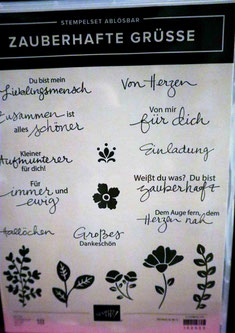 STEMPELSET ABLÖSBAR
ZAUBERHAFTE GRÜSSE
Du bist mein
Lieblingsmensch
Von Herzen
Zusammen ist
alles schöner
Von mir
für dich
Kleiner
Aufmunterer
für dich!
Einladung
Für
immer und
ewig
Weißt du was? Du bist
zauberhaft
Hallöchen
Großes
Dankeschön
Dem Auge fern, dem
Herzen nah
18